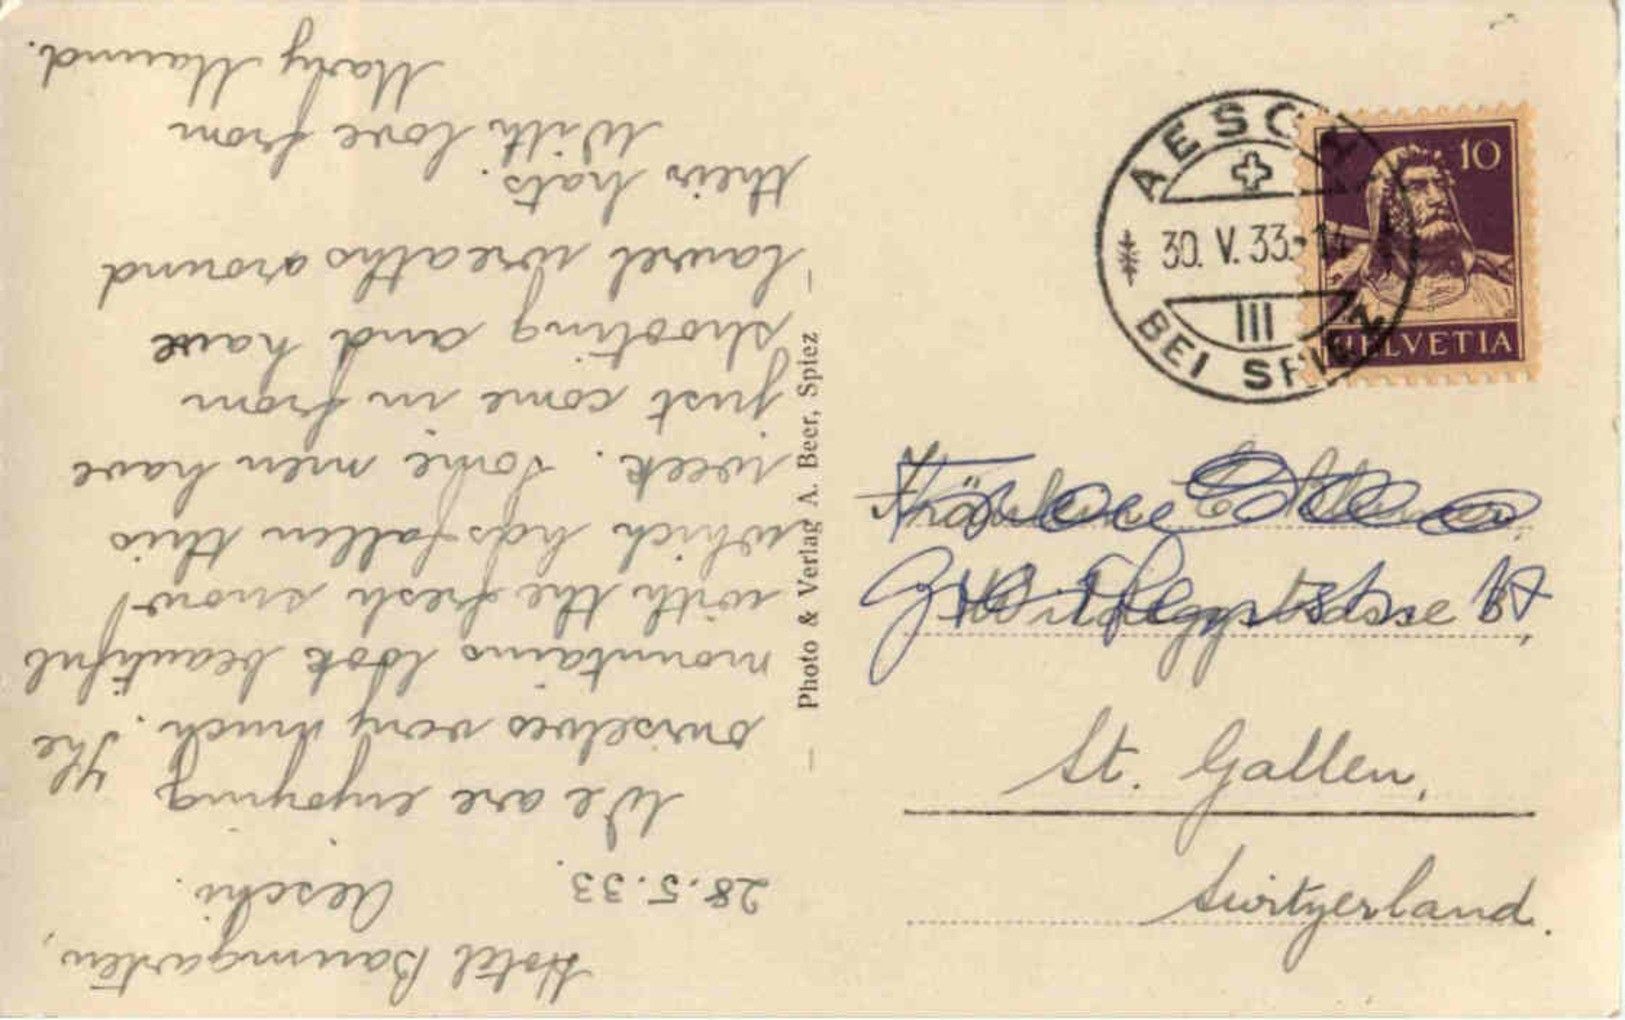 Hotel Baumgarten,
Aeschi.
28.5.33.
We are enjoying
ourselves very much. The
mountains look beautiful
with the fresh snow
which has fallen this
week. Some men have
just come in from
shooting and have
laurel wreaths around
their hats.
With love from
Mary Maund.
Photo & Verlag A. Beer, Spiez
AESCHI
30. V. 33.-14
III
BEI SPIEZ
10
HELVETIA
Fräulein
St. Gallen,
Switzerland.